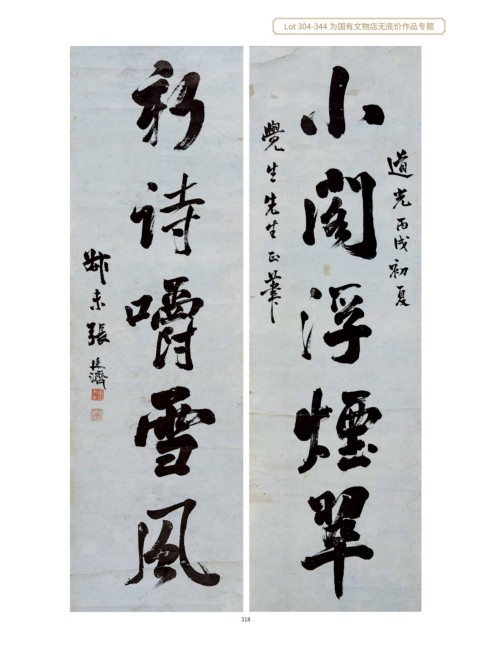 Lot 304-344 为国有文物店无底价作品专题
道光丙戌初夏
小閣浮煙翠
覺生先生正筆
新詩嚼雪風
叔未張廷濟
318